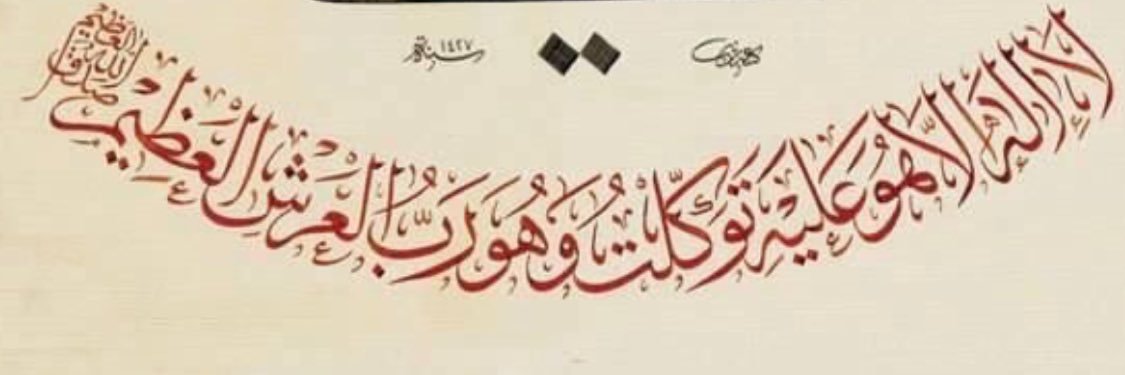 لَا إِلٰهَ إِلَّا هُوَ عَلَيْهِ تَوَكَّلْتُ وَهُوَ رَبُّ الْعَرْشِ الْعَظِيمِ
صدق الله العظيم
سنة ١٤٢٧